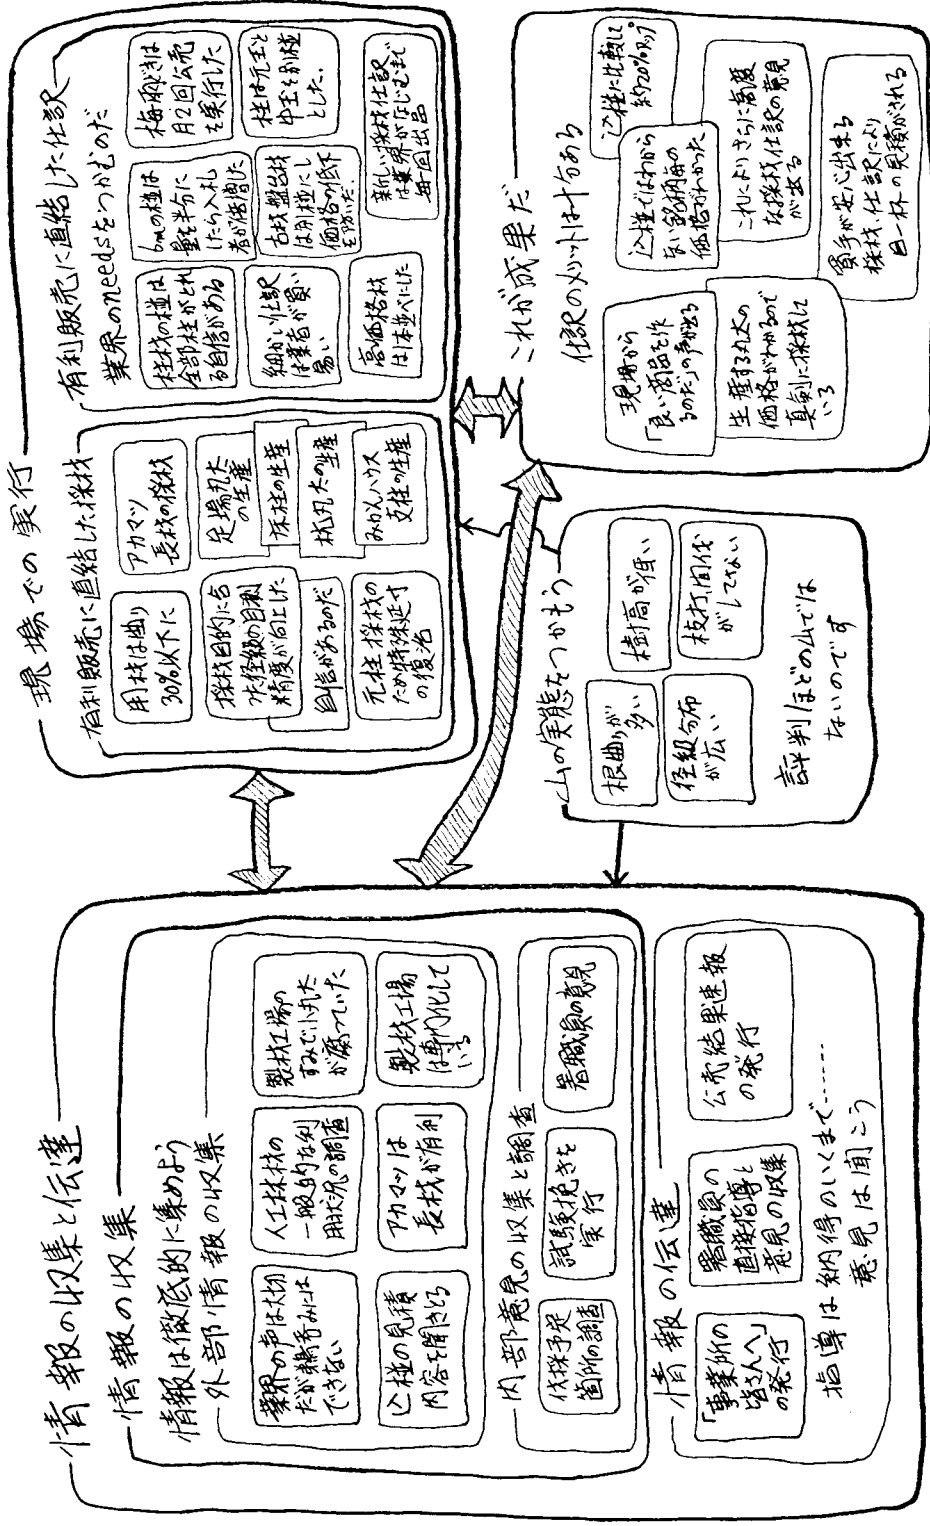 情報の収集と伝達
情報の収集
情報は徹底的に集めよう
外部情報の収集
業界の声は大切
だが鵜呑みには
できない
人工林材の
一般的な利
用状況の調査
製材工場の
すみで小丸太
が腐っていた
込椪の見積
内容を聞きとる
アカマツは
長材が有利
製材工場
は専門化して
いる
内部意見の収集と調査
伐採予定
箇所の調査
試験挽きを
実行
署職員の意見
情報の伝達
「事業所の
皆さんへ」
の発行
署職員の
直接指導と
意見の収集
公売結果速報
の発行
指導は納得のいくまで……
意見は聞こう
現場での実行
有利販売に直結した採材
用材は曲り
30%以下に
アカマツ
長材の採材
採材目的に合
た径級の目測
精度が向上した
自信があるのだ
足場丸太
の生産
床柱の生産
杭丸太の生産
元柱採材の
ため特殊延寸
の復活
みかんハウス
支柱の生産
有利販売に直結した仕訳
業界のneedsをつかむのだ
柱材の椪は
全部柱がとれ
る自信がある
6mの椪は
量を半分に
したら入札
者が倍増した
梅雨どきは
月2回公売
を実行した
細かい仕訳
は業者が買い
易い
古材盤台材
は別椪にし
価格の低下
を防いだ。
柱は元玉と
中玉を別椪
とした。
高価格材
は1本椪にした
新しい採材仕訳
は業界がなじむまで
毎回出品
山の実態をつかもう
根曲りが
多い
樹高が低い
径級分布
が広い
枝打、間伐
がしてない
評判ほどの山では
ないのです
これが成果だ
仕訳のメリットは十分ある
現場から
「良い商品を作
るのだ」の声が出る
込椪ではわから
ない銘柄毎の
価格がわかった
込椪に比較して
約20%アップ。
生産する丸太の
価格がわかるので
真剣に採材して
いる
これによりさらに高度
な採材、仕訳の意見
が出る
買手が安心出来る
採材、仕訳により
目一杯の見積がされる